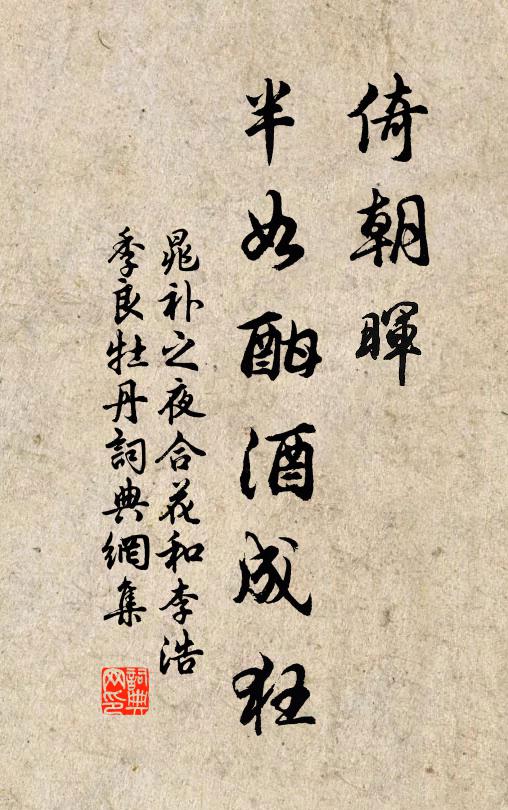 倚朝暉
半如酣酒成狂
晁补之夜合花和李浩
季良牡丹詞典網集
詞典網印